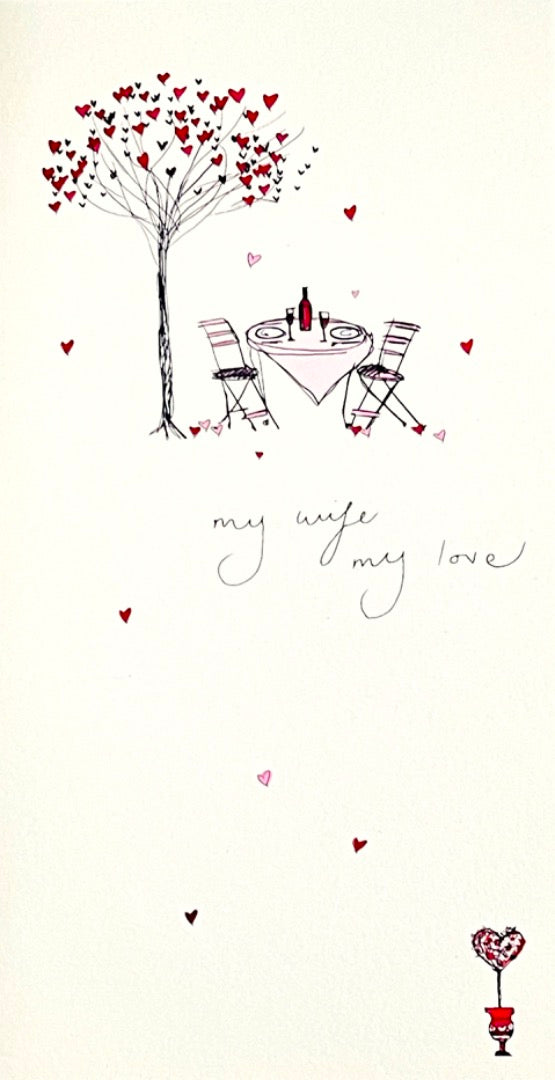 my wife
my love